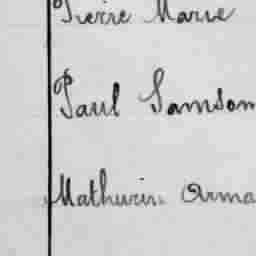 Pierre Marie
Paul Samson
Mathurin Arma